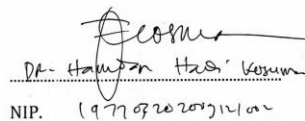 Dr. Hamdan Hadi Kusuma
NIP. 197703202009121002